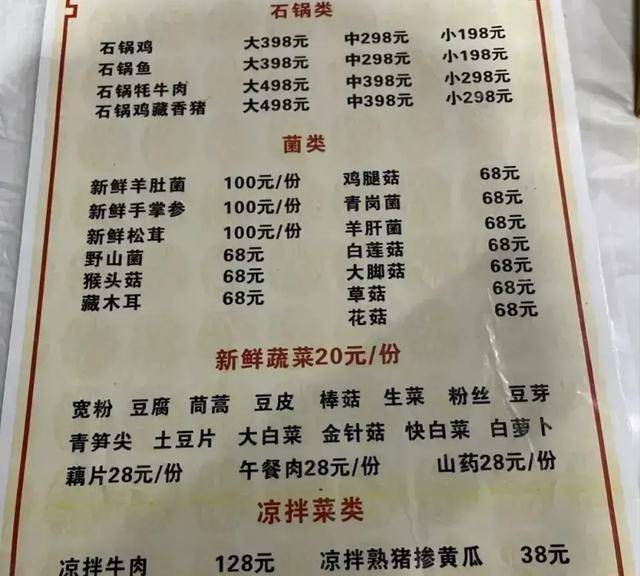 石锅类
石锅鸡 大398元 中298元 小198元
石锅鱼 大398元 中298元 小198元
石锅牦牛肉 大498元 中398元 小298元
石锅鸡藏香猪 大498元 中398元 小298元
菌类
新鲜羊肚菌 100元/份 鸡腿菇 68元
新鲜手掌参 100元/份 青岗菌 68元
新鲜松茸 100元/份 羊肝菌 68元
野山菌 68元 白莲菇 68元
猴头菇 68元 大脚菇 68元
藏木耳 68元 草菇 68元
花菇 68元
新鲜蔬菜20元/份
宽粉 豆腐 茼蒿 豆皮 棒菇 生菜 粉丝 豆芽
青笋尖 土豆片 大白菜 金针菇 快白菜 白萝卜
藕片28元/份 午餐肉28元/份 山药28元/份
凉拌菜类
凉拌牛肉 128元 凉拌熟猪掺黄瓜 38元